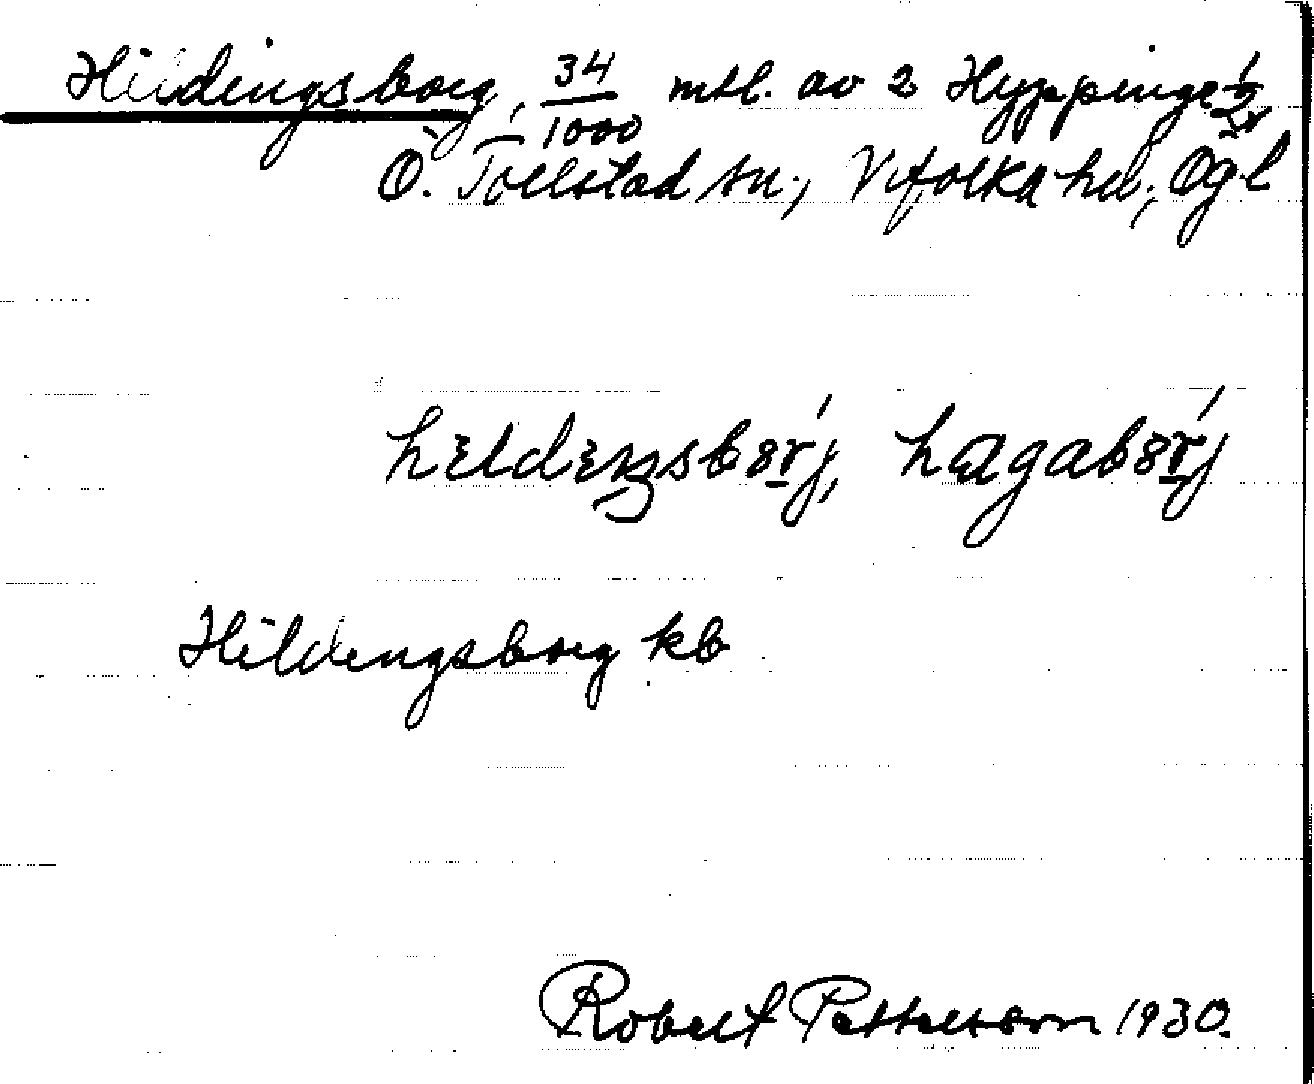 Hildingsborg, 34/1000 mtl. av 2 Hyppinge 1/2
Ö. Tollstad sn., Vifolka hd., Ögl
hɛldɛŋsbɞrj, hagabɞrj
Hildingsborg kb
Robert Pettersson 1930.